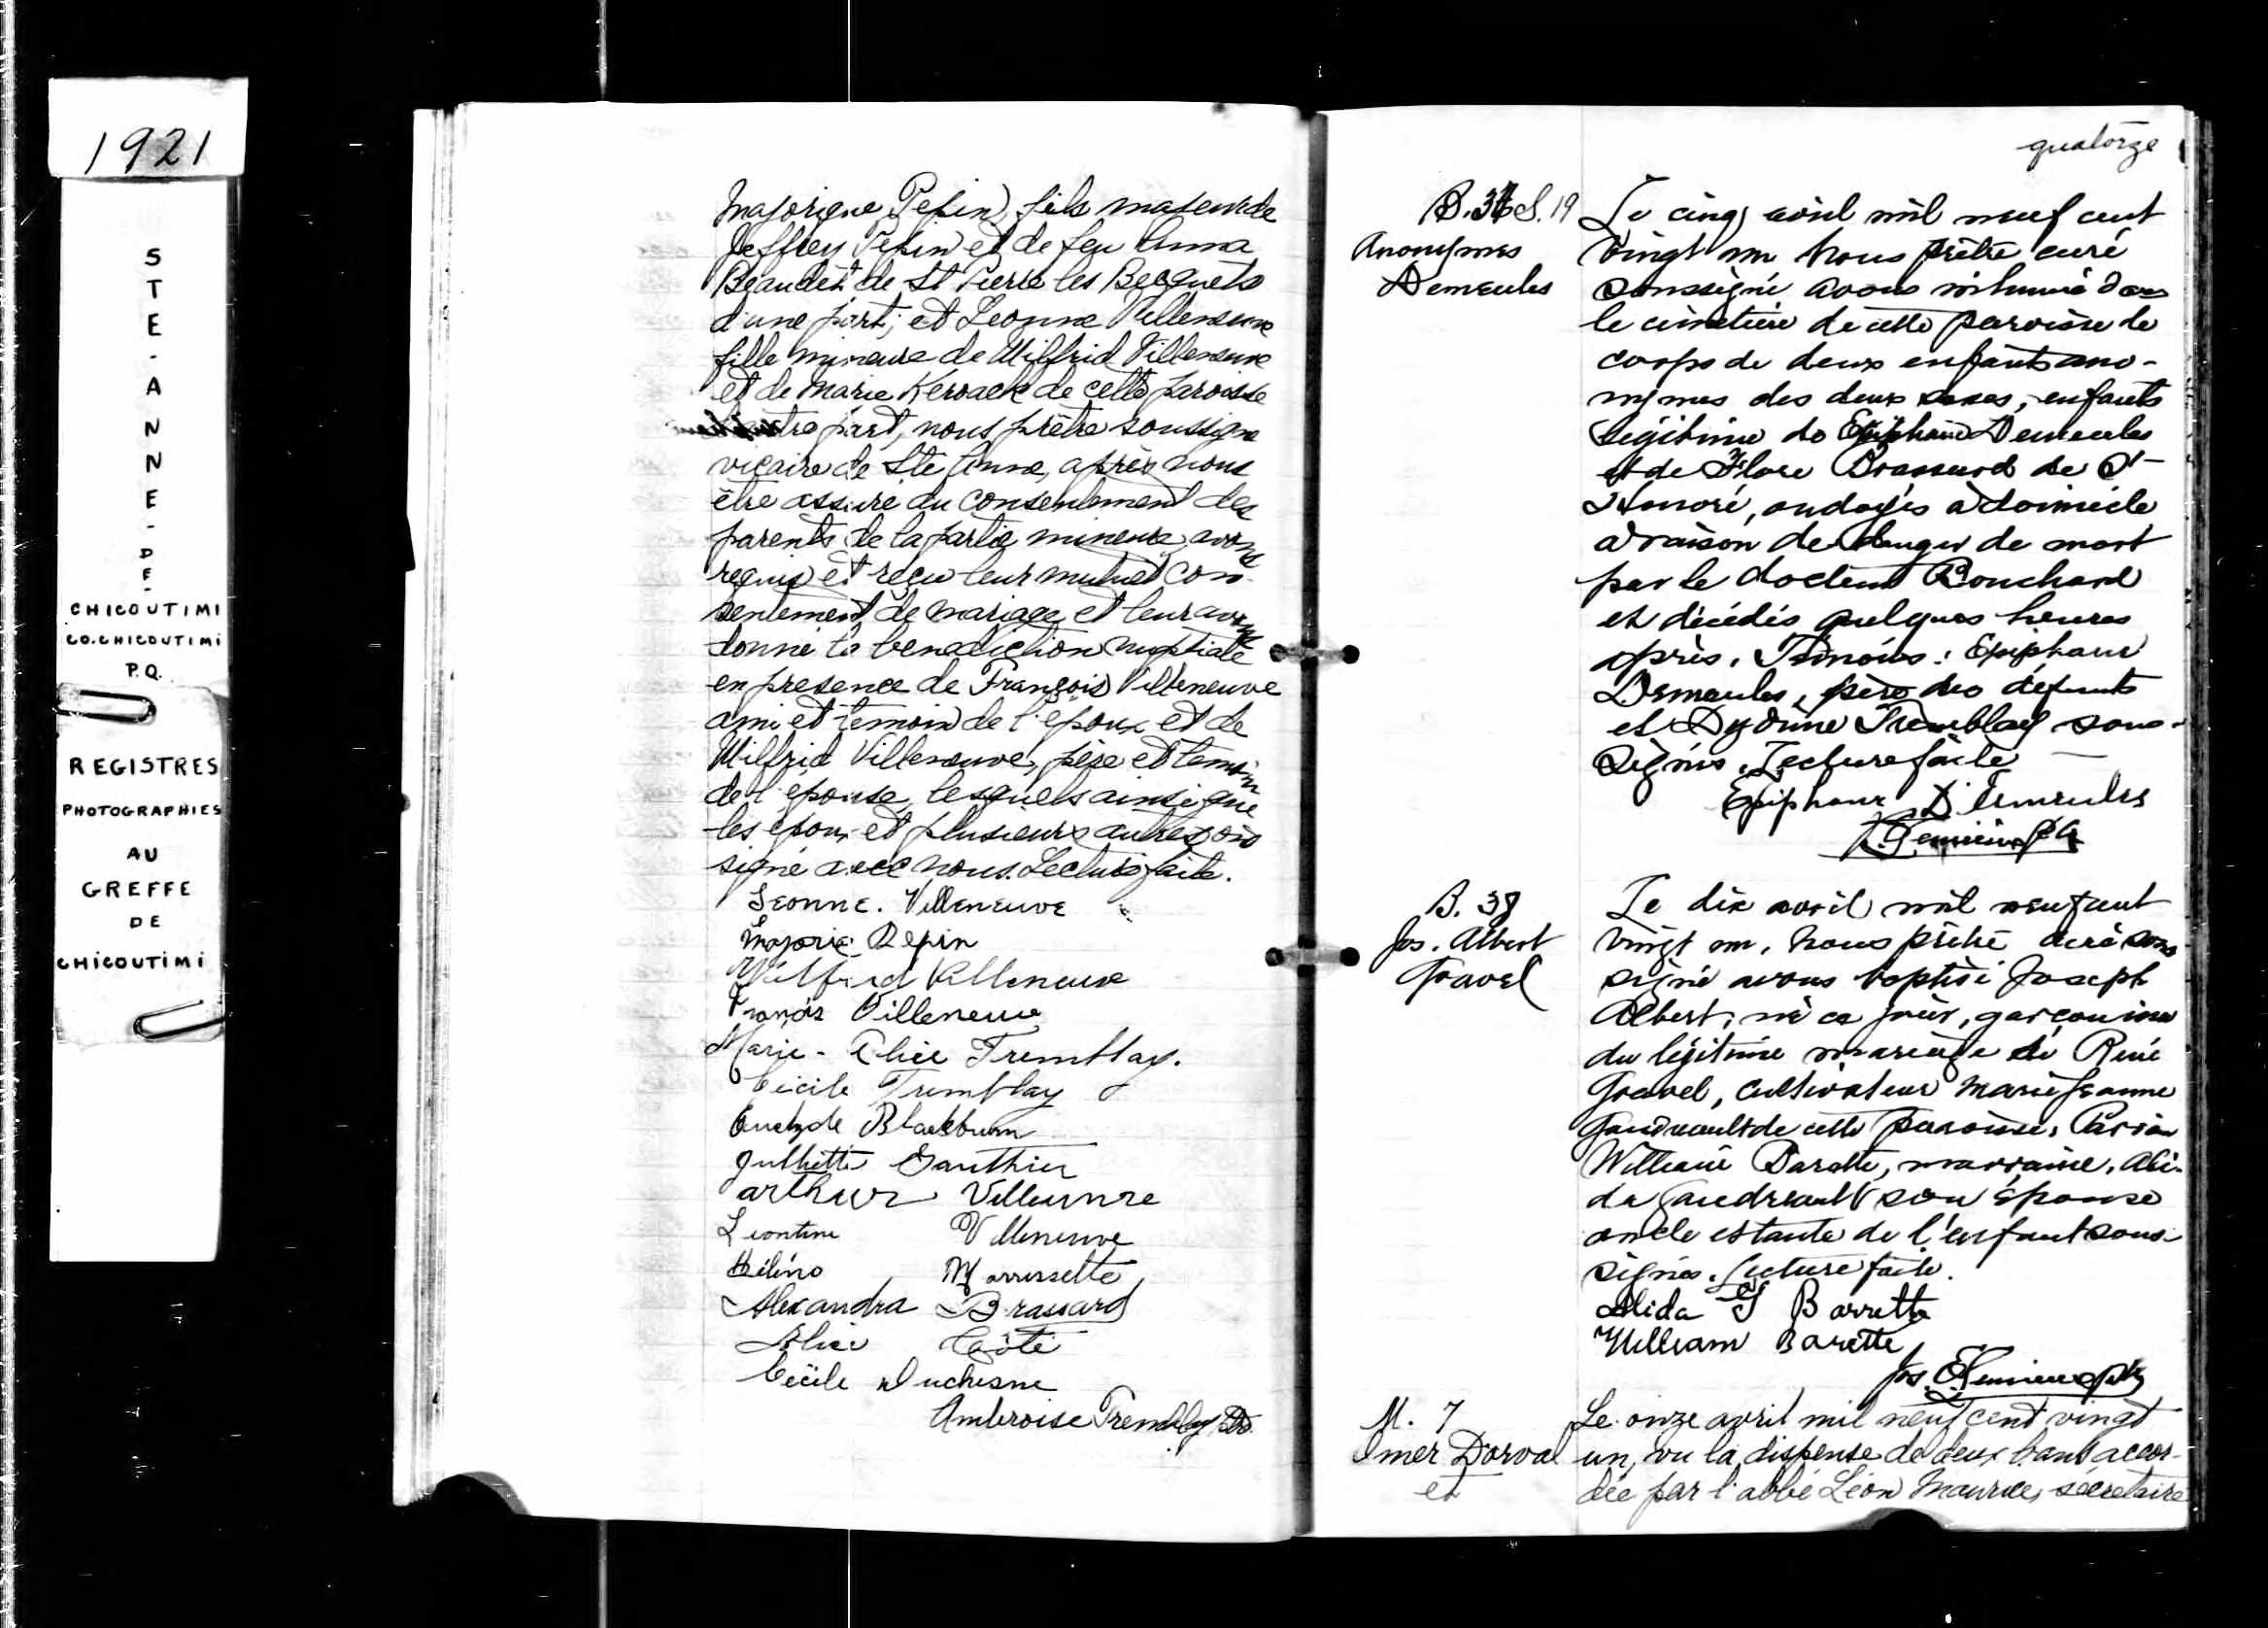 1921
STE-ANNE-DE-
CHICOUTIMI
CO. CHICOUTIMI
P.Q.
REGISTRES
PHOTOGRAPHIES
AU
GREFFE
DE
CHICOUTIMI
Majorique Pepin, fils majeur de
Jeffrey Pepin et de feu Anna
Beaudet de St Pierre les Becquets
d'une part; et Leonne Villeneuve
fille mineure de Wilfrid Villeneuve
et de Marie Keroack de cette paroisse
part, nous prêtre soussigné
vicaire de Ste Anne, après nous
être assuré du consentement des
parents de la partie mineure avons
requis et reçu leur mutuel con-
sentement de mariage et leur avons
donné la benediction nuptiale
en presence de François Villeneuve
ami et temoin de l'époux et de
Wilfrid Villeneuve, père et temoin
de l'épouse, lesquels ainsi que
les époux et plusieurs autres ont
signé avec nous. Lecture faite.
Leonne. Villeneuve
Majoric Pepin
Wilfrid Villeneuve
Francis Villeneuve
Marie-Alice Tremblay.
Cécile Tremblay
Blackburn
Julliette Gauthier
Arthur Villeneuve
Leontine Villeneuve
Morrissette
Alexandra Brassard
Alice Côté
Cécile Duchesne
Ambroise Tremblay Ptre.
quatorze
S. 19
Anonymes
Demeules
Le cinq avril mil neuf cent
vingt un Nous prêtre curé
soussigné avons inhumé dans
le cimetière de cette paroisse le
corps de deux enfants ano-
nymes des deux sexes, enfants
légitime de Epiphane Demeules
et de Flore Brassard de St-
Honoré, ondoyés à domicile
à raison de danger de mort
par le docteur Bouchard
et décédés quelques heures
après. Témoins: Epiphane
Demeules, père des défunts
et Tremblay sous-
signés. Lecture faite
Epiphane Demeules
B. 38
Jos. Albert
Gravel
Le dix avril mil neuf cent
vingt un, Nous prêtre curé sous
signé avons baptisé Joseph
Albert, né ce jour, garçon issu
du légitime mariage de René
Gravel, cultivateur Marie Jeanne
Gaudreault de cette paroisse. Parrain
William Barette, marraine, Ali-
da Gaudreault son épouse
oncle et tante de l'enfant sous-
signés. Lecture faite.
Alida G Barrette
William Barette
M. 7
Omer Dorval
et
Le onze avril mil neuf cent vingt
un, vu la dispense de deux bans accor-
dée par l'abbé Léon Maurice, sécrétaire